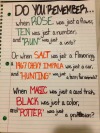 DO YOU REMEMBER...
when ROSE was just a flower,
TEN was just a number,
and "RUN" was just a verb?
Or when SALT was just a flavoring,
A 1967 CHEVY IMPALA was just a car,
"HUNTING" was just
When MAGIC was just a card trick,
BLACK was just a color,
and "POTTER" was just a profession?